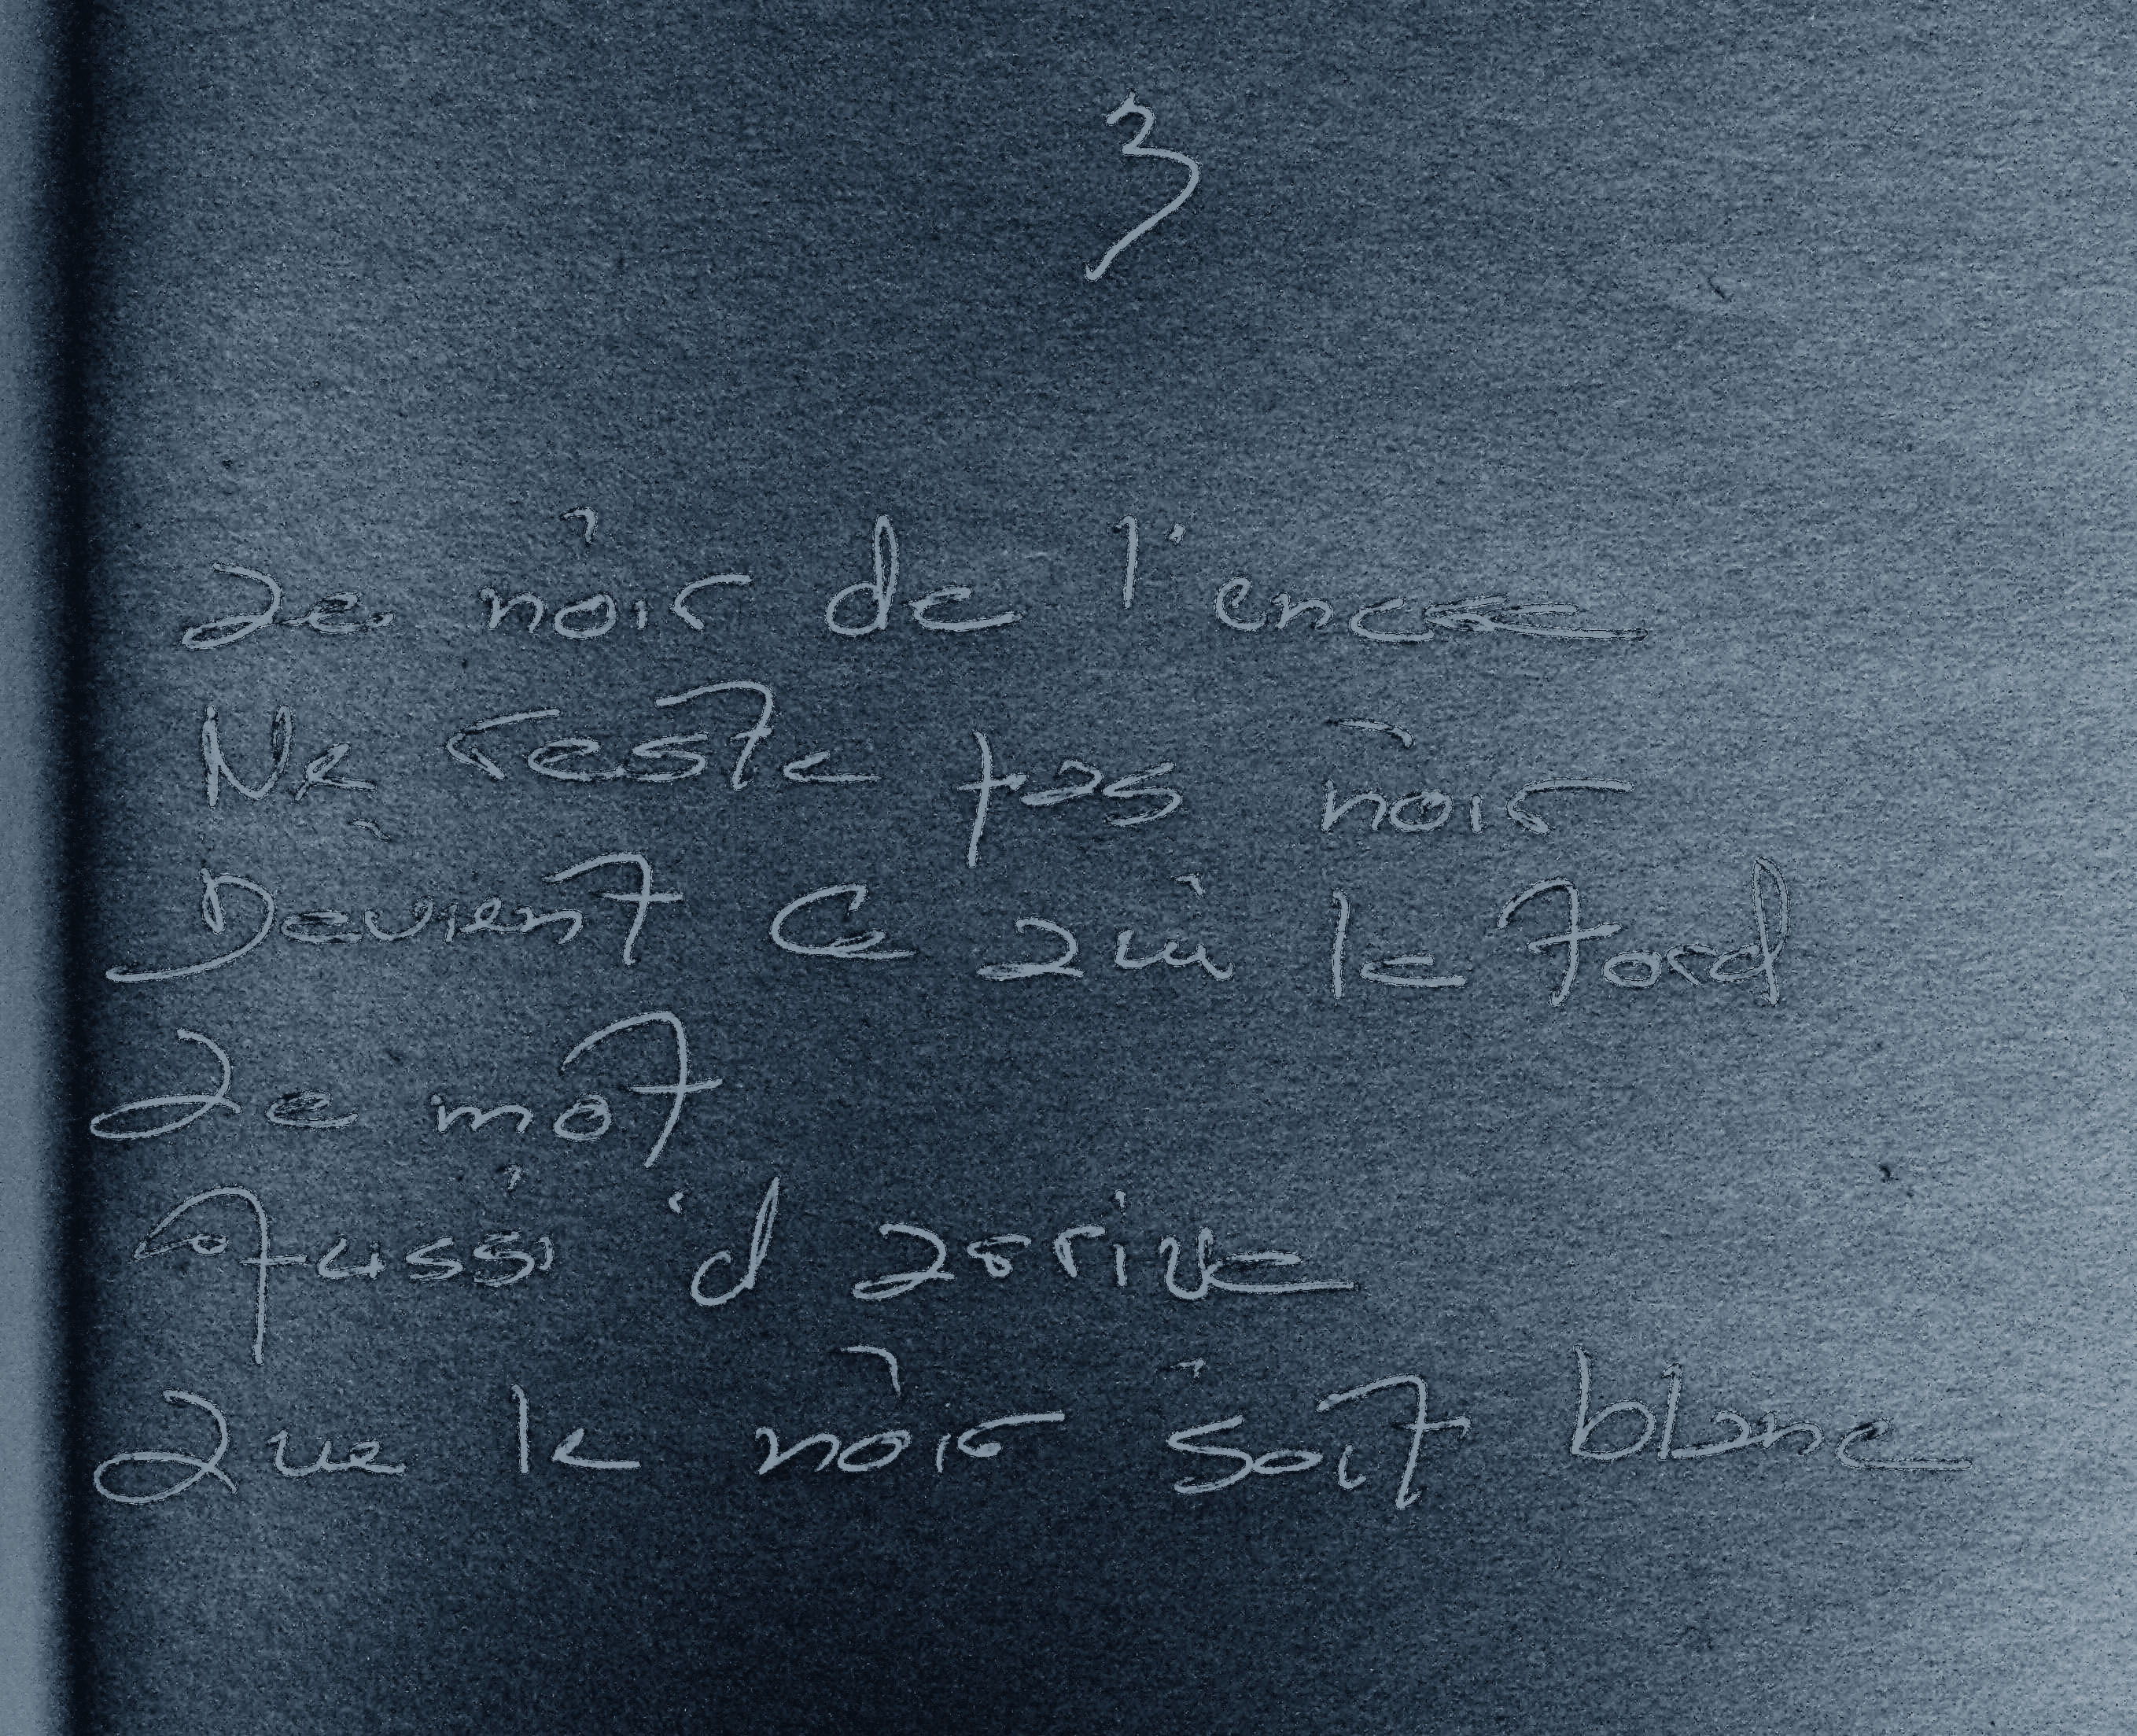 3
Le noir de l'encre
Ne reste pas noir
Devient ce qui le tord
Le mot
Aussi d arrive
Que le noir soit blanc